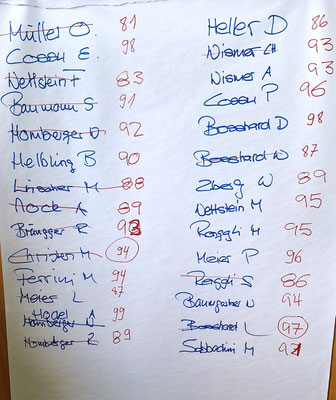 Müller O. 81
Cossu E. 98
Nettstein F 83
Baumann S 91
Homberger U 92
Helbling B 90
Linscher M 88
Nock A 89
Brüngger R 93
Christen M 94
Ferrini M 94
Meier L 87
Hagel A 99
Homberger U
Homberger R 89
Heller D 86
Wismer CH 93
Wismer A 93
Cossu P 96
Bosshard D 98
Bosshard W 87
Zberg W 89
Nettstein M 95
Roggli M 95
Meier P 96
Roggli S 86
Baumgartner N 94
Bosshard L 97
Sabbadini M